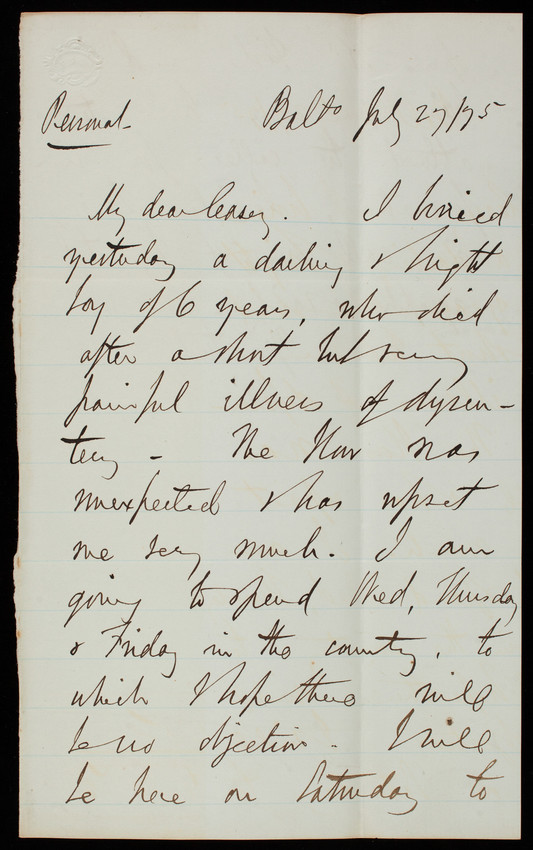 Personal
Balto July 27/75
My dear Casey. I buried
yesterday a darling & bright
boy of 6 years, who died
after a short but very
painful illness of dysen-
tery - The blow was
unexpected & has upset
me very much. I am
going to spend Wed, Thursday
& Friday in the country, to
which I hope there will
be no objection - I will
be here on Saturday to